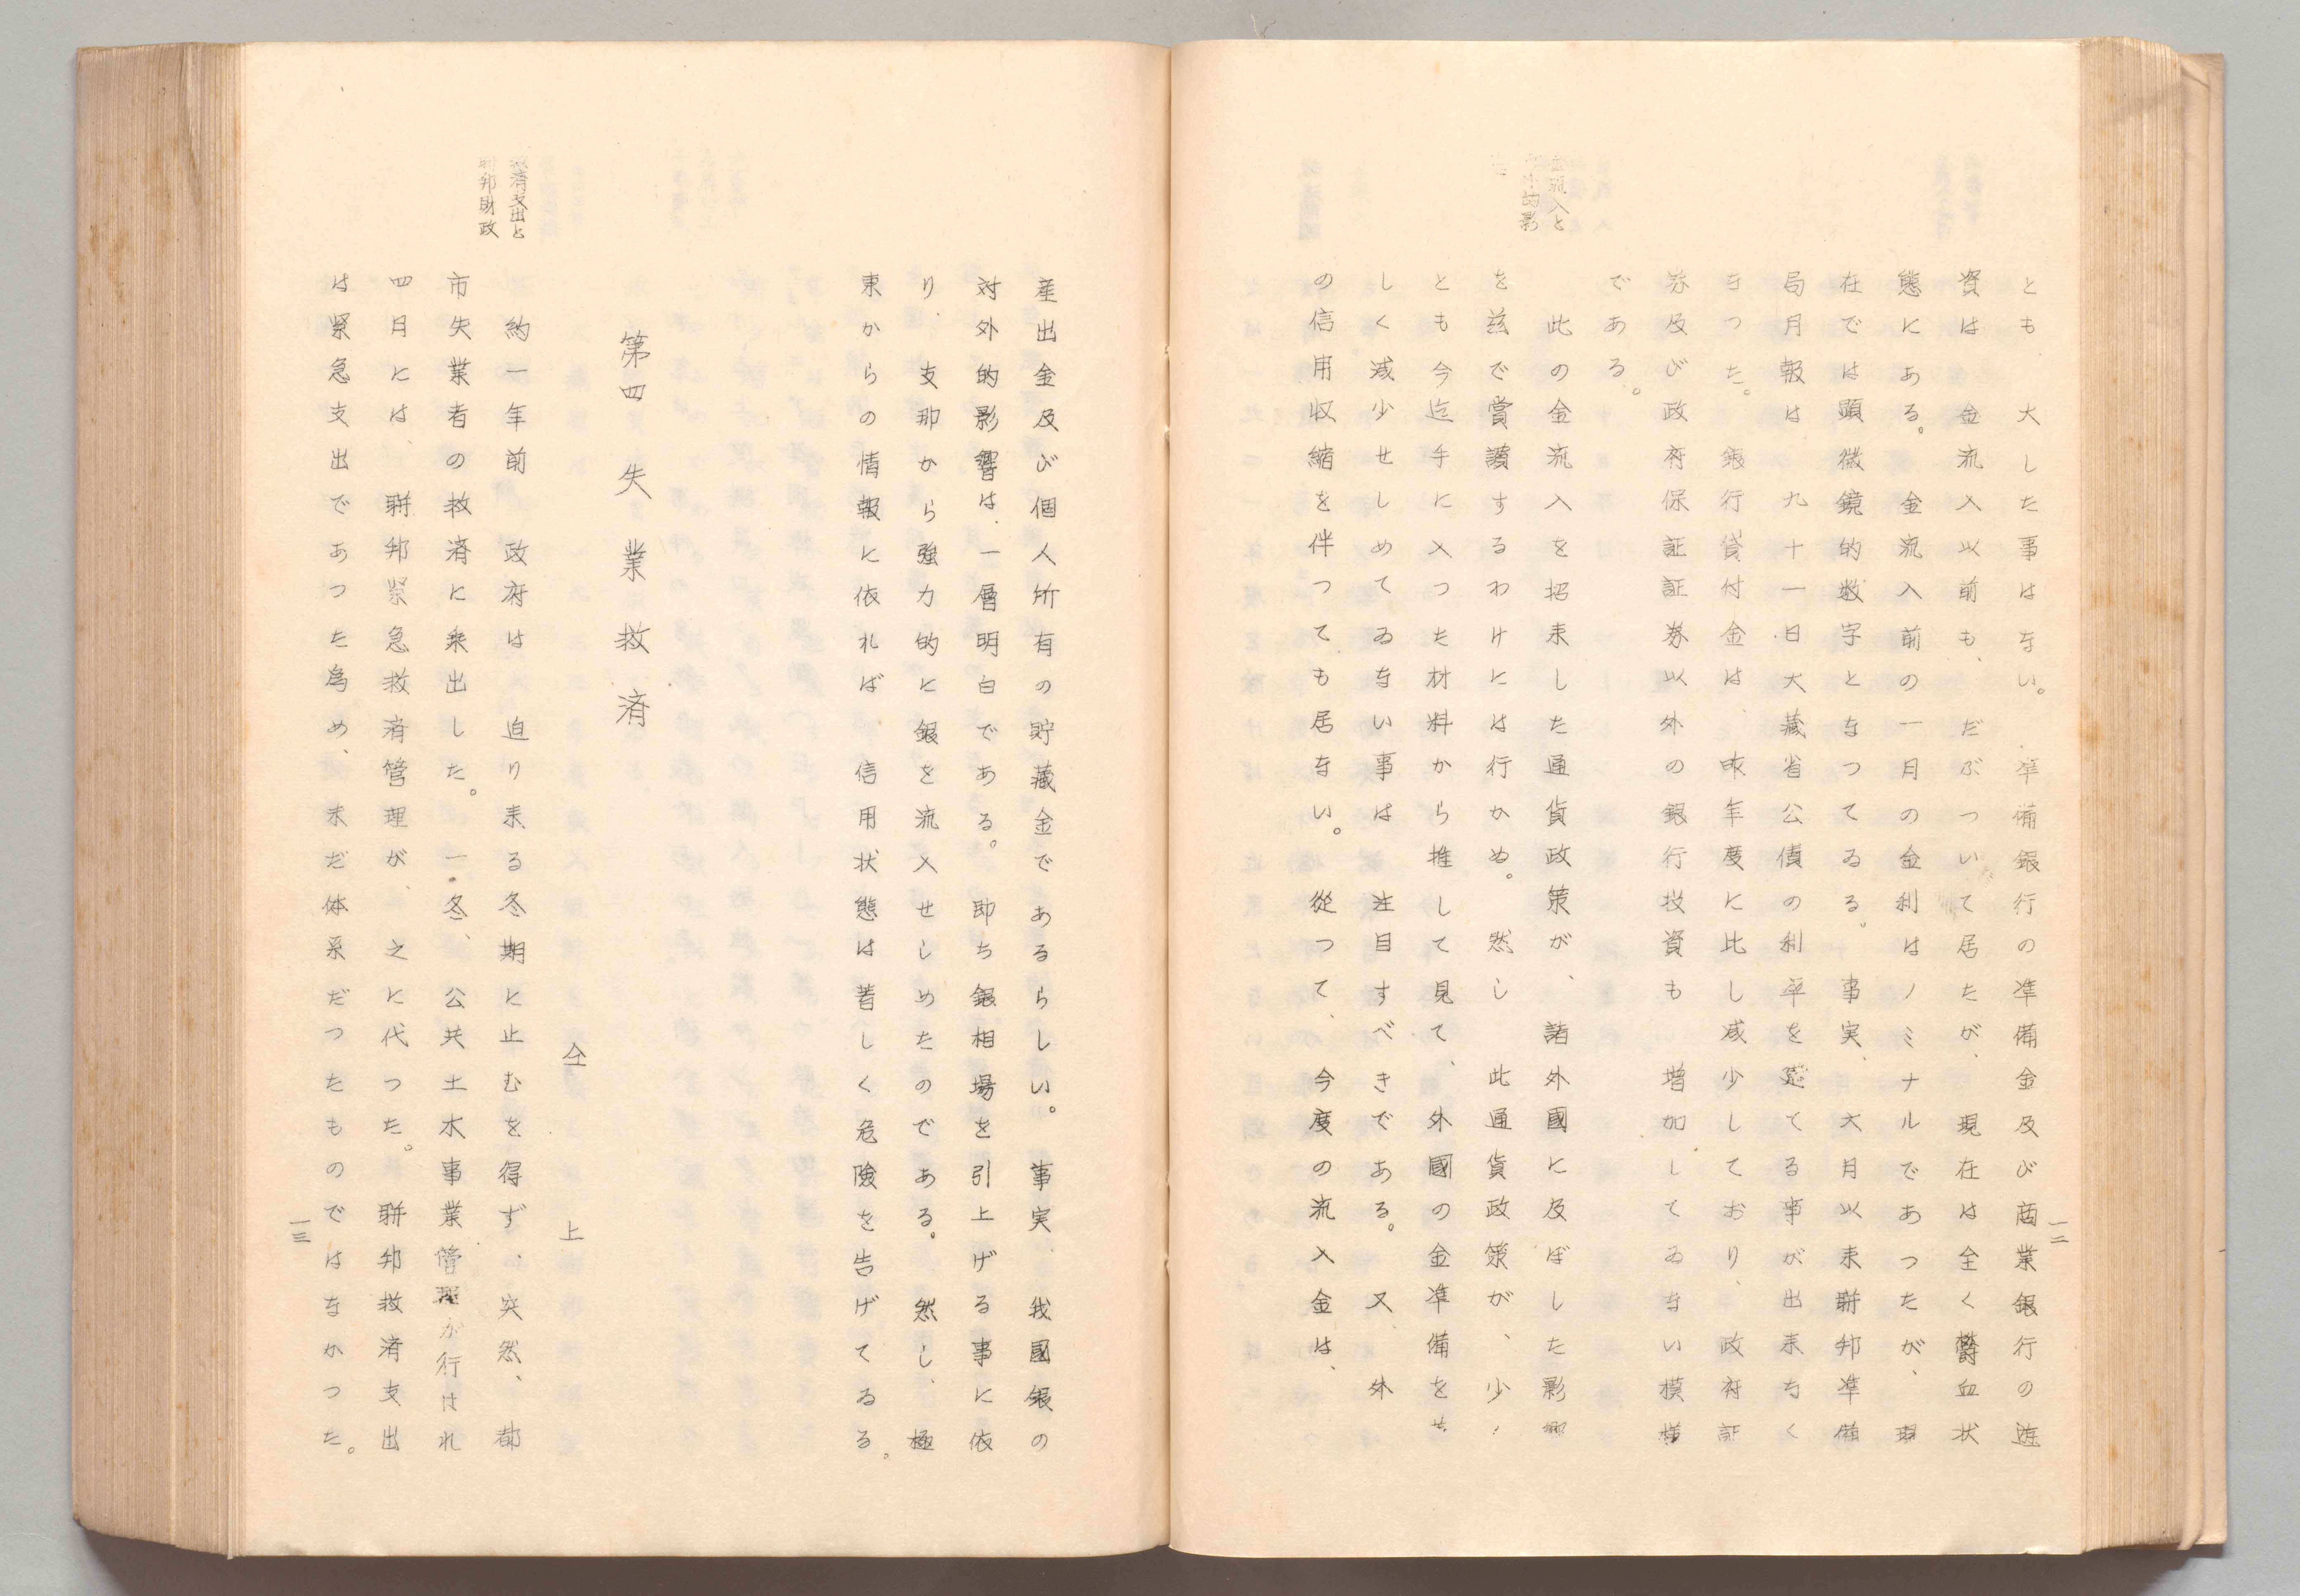 一二
とも　大した事はない。準備銀行の準備金及び商業銀行の遊
資は金流入以前も、だぶついて居たが、現在は全く欝血状
態にある。金流入前の一月の金利はノミナルであつたが、現
在では顕微鏡的数字となつてゐる。事実、大月以来聯邦準備
局月報は　九十一日大蔵省公債の利率を
てる事が出来なく
なつた。銀行貸付金は、昨年度に比し減少しており、政府証
券及び政府保証証券以外の銀行投資も　増加してゐない模様
である。
金流入と
此の金流入を招来した通貨政策が、諸外國に及ぼした影響
を茲で賞讃するわけには行かぬ。然し　此通貨政策が、少
とも今迄手に入つた材料から推して見て、外國の金準備を
しく減少せしめてゐない事は　注目すべきである。又、外
の信用収縮を伴つても居ない。従つて、今度の流入金は、
産出金及び個人所有の貯藏金であるらしい。事実、我國銀の
対外的影響は、一層明白である。即ち銀相場を引上げる事に依
り、支那から強力的に　銀を流入せしめたのである。然し、極
東からの情報に依れば、信用状態は著しく危険を告げてゐる。
第四　失業救済
仝　上
救済支出と
聯邦財政
約一年前　政府は　迫り来る冬期に止むを得ず、突然、都
市失業者の救済に乗出した。一冬、公共土木事業管理が行はれ
四月には、聯邦緊急救済管理が、之に代つた。聯邦救済支出
は緊急支出であつた為め、未だ体系だつたものではなかつた。
一三